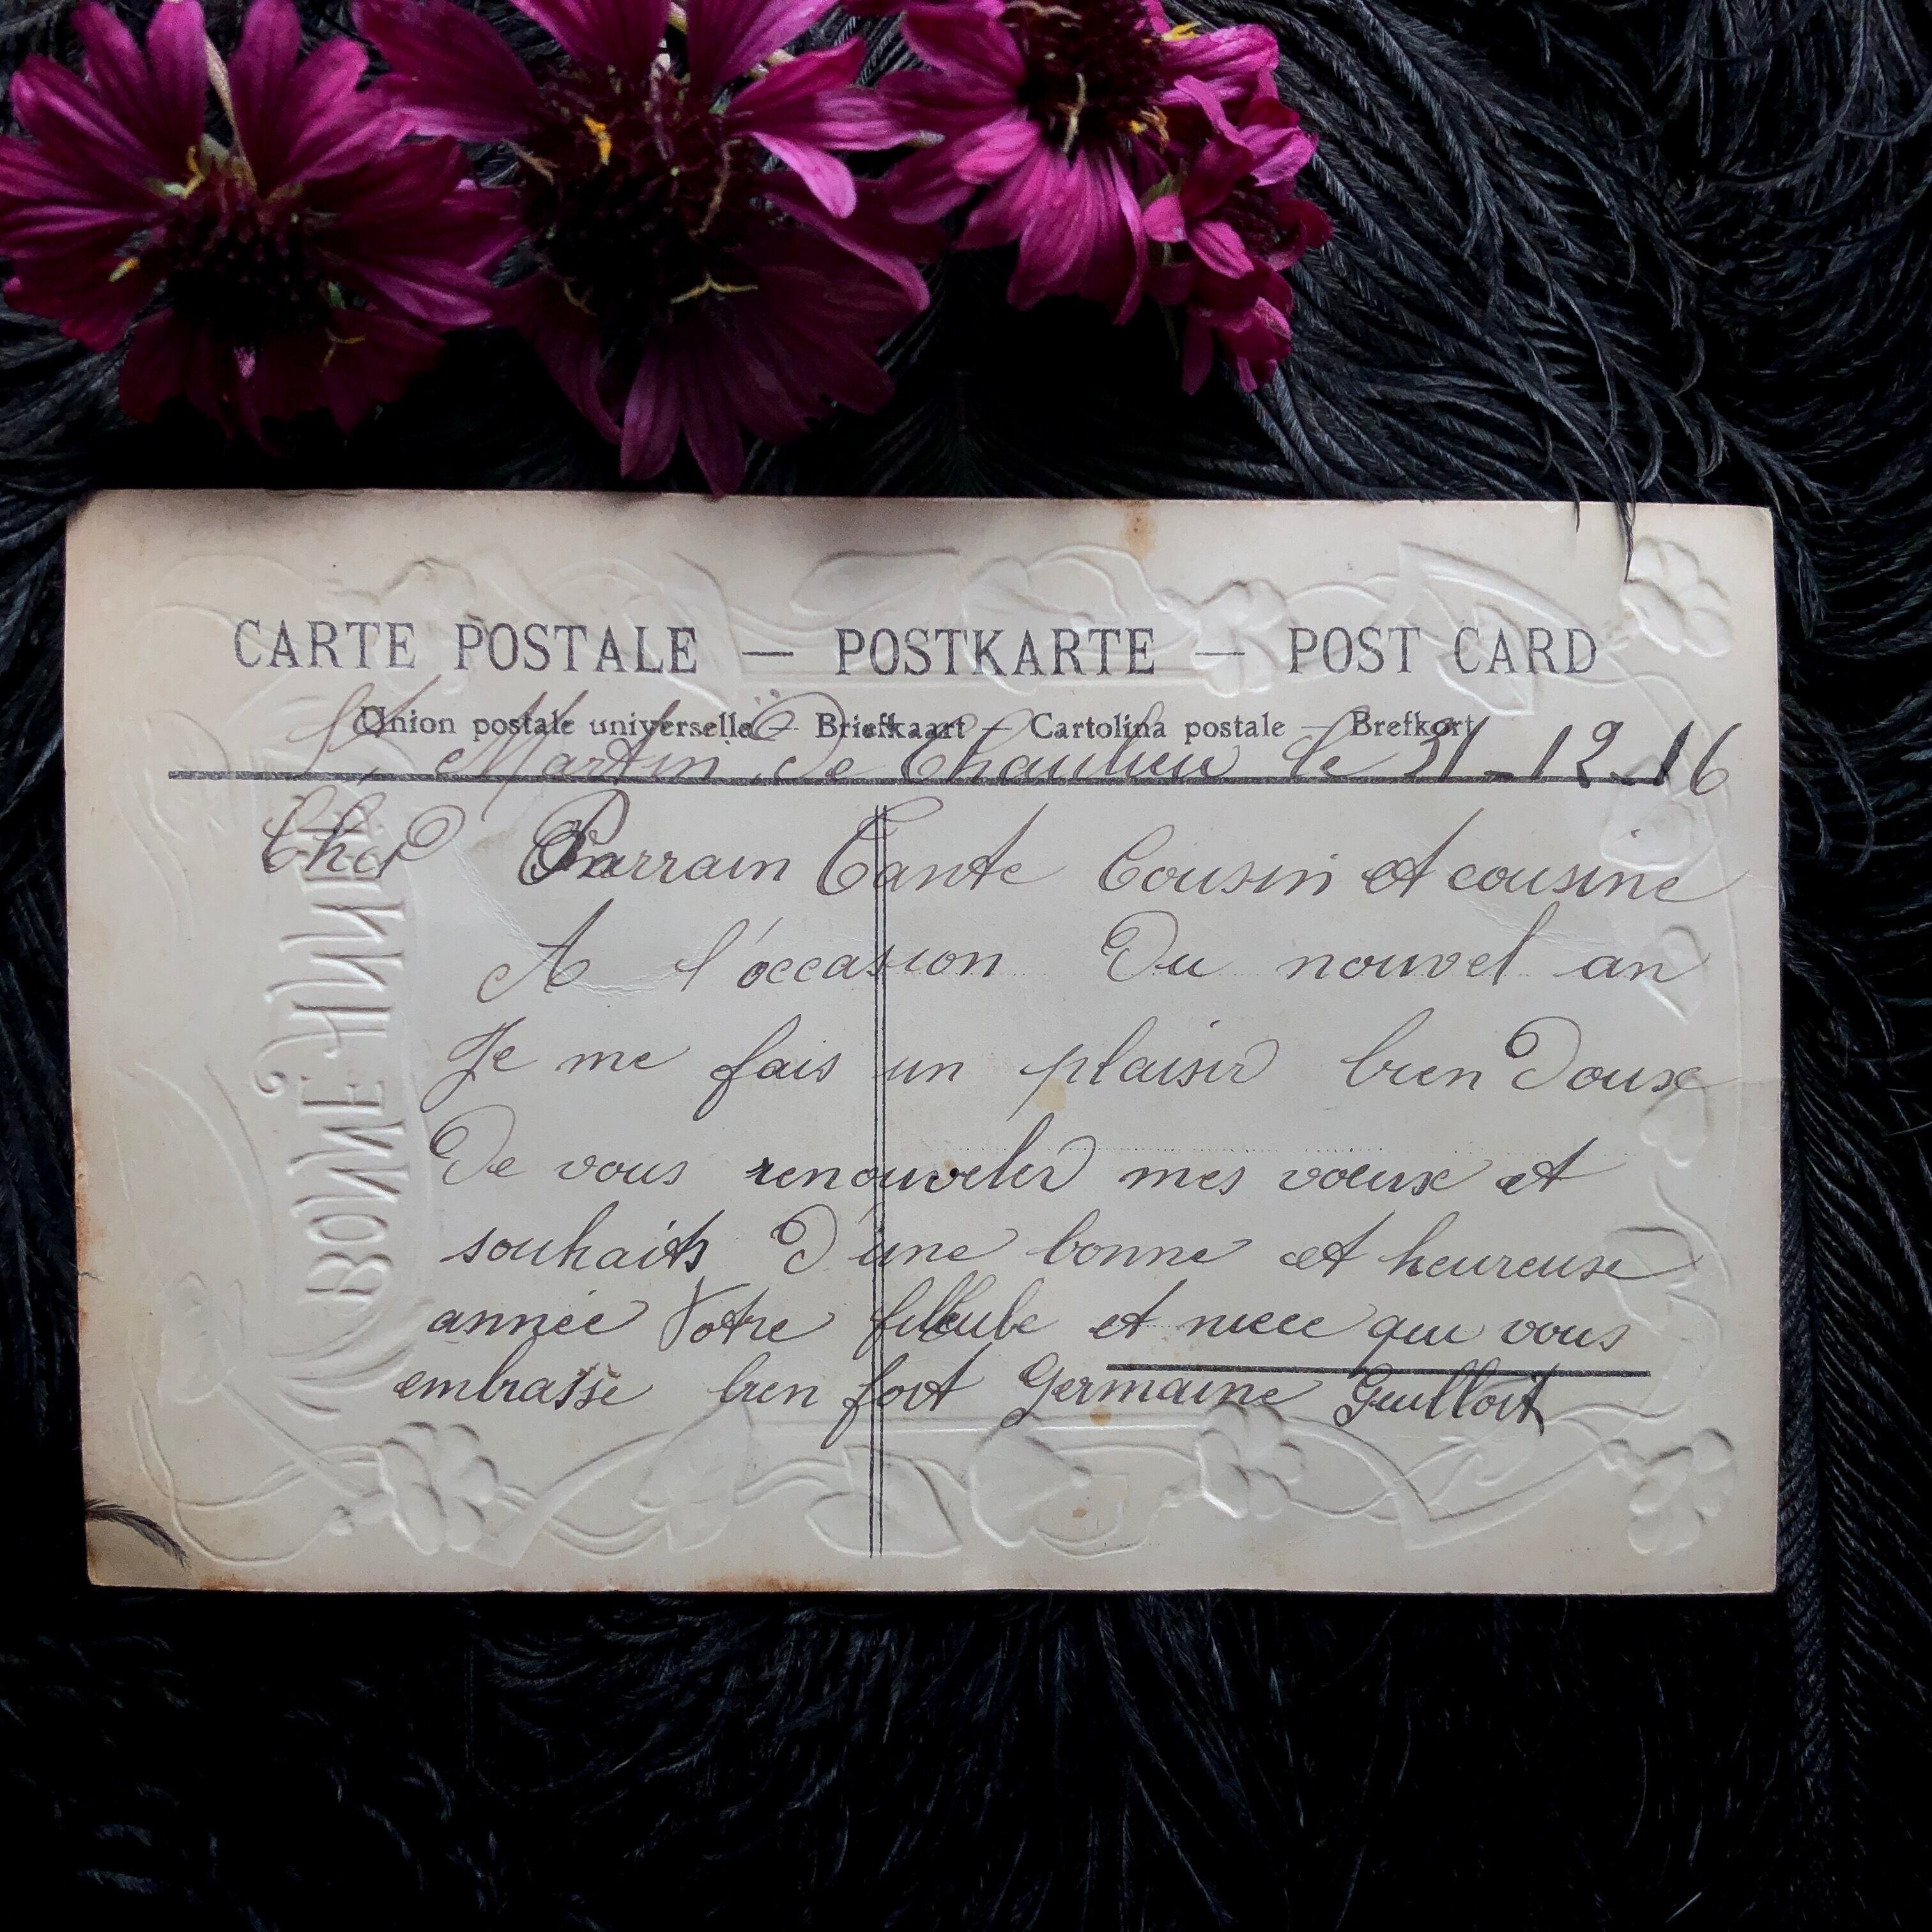 CARTE POSTALE — POSTKARTE — POST CARD
Union postale universelle — Briefkaart — Cartolina postale — Brefkort
St Martin de Chaulieu le 31-12-16
Cher Parrain Tante Cousin et cousine
A l'occasion Du nouvel an
Je me fais un plaisir bien Doux
De vous renouveler mes vœux et
souhaits D'une bonne et heureuse
année Votre filleule et niece qui vous
embrasse bien fort Germaine Guilloit
BONNE ANNÉE